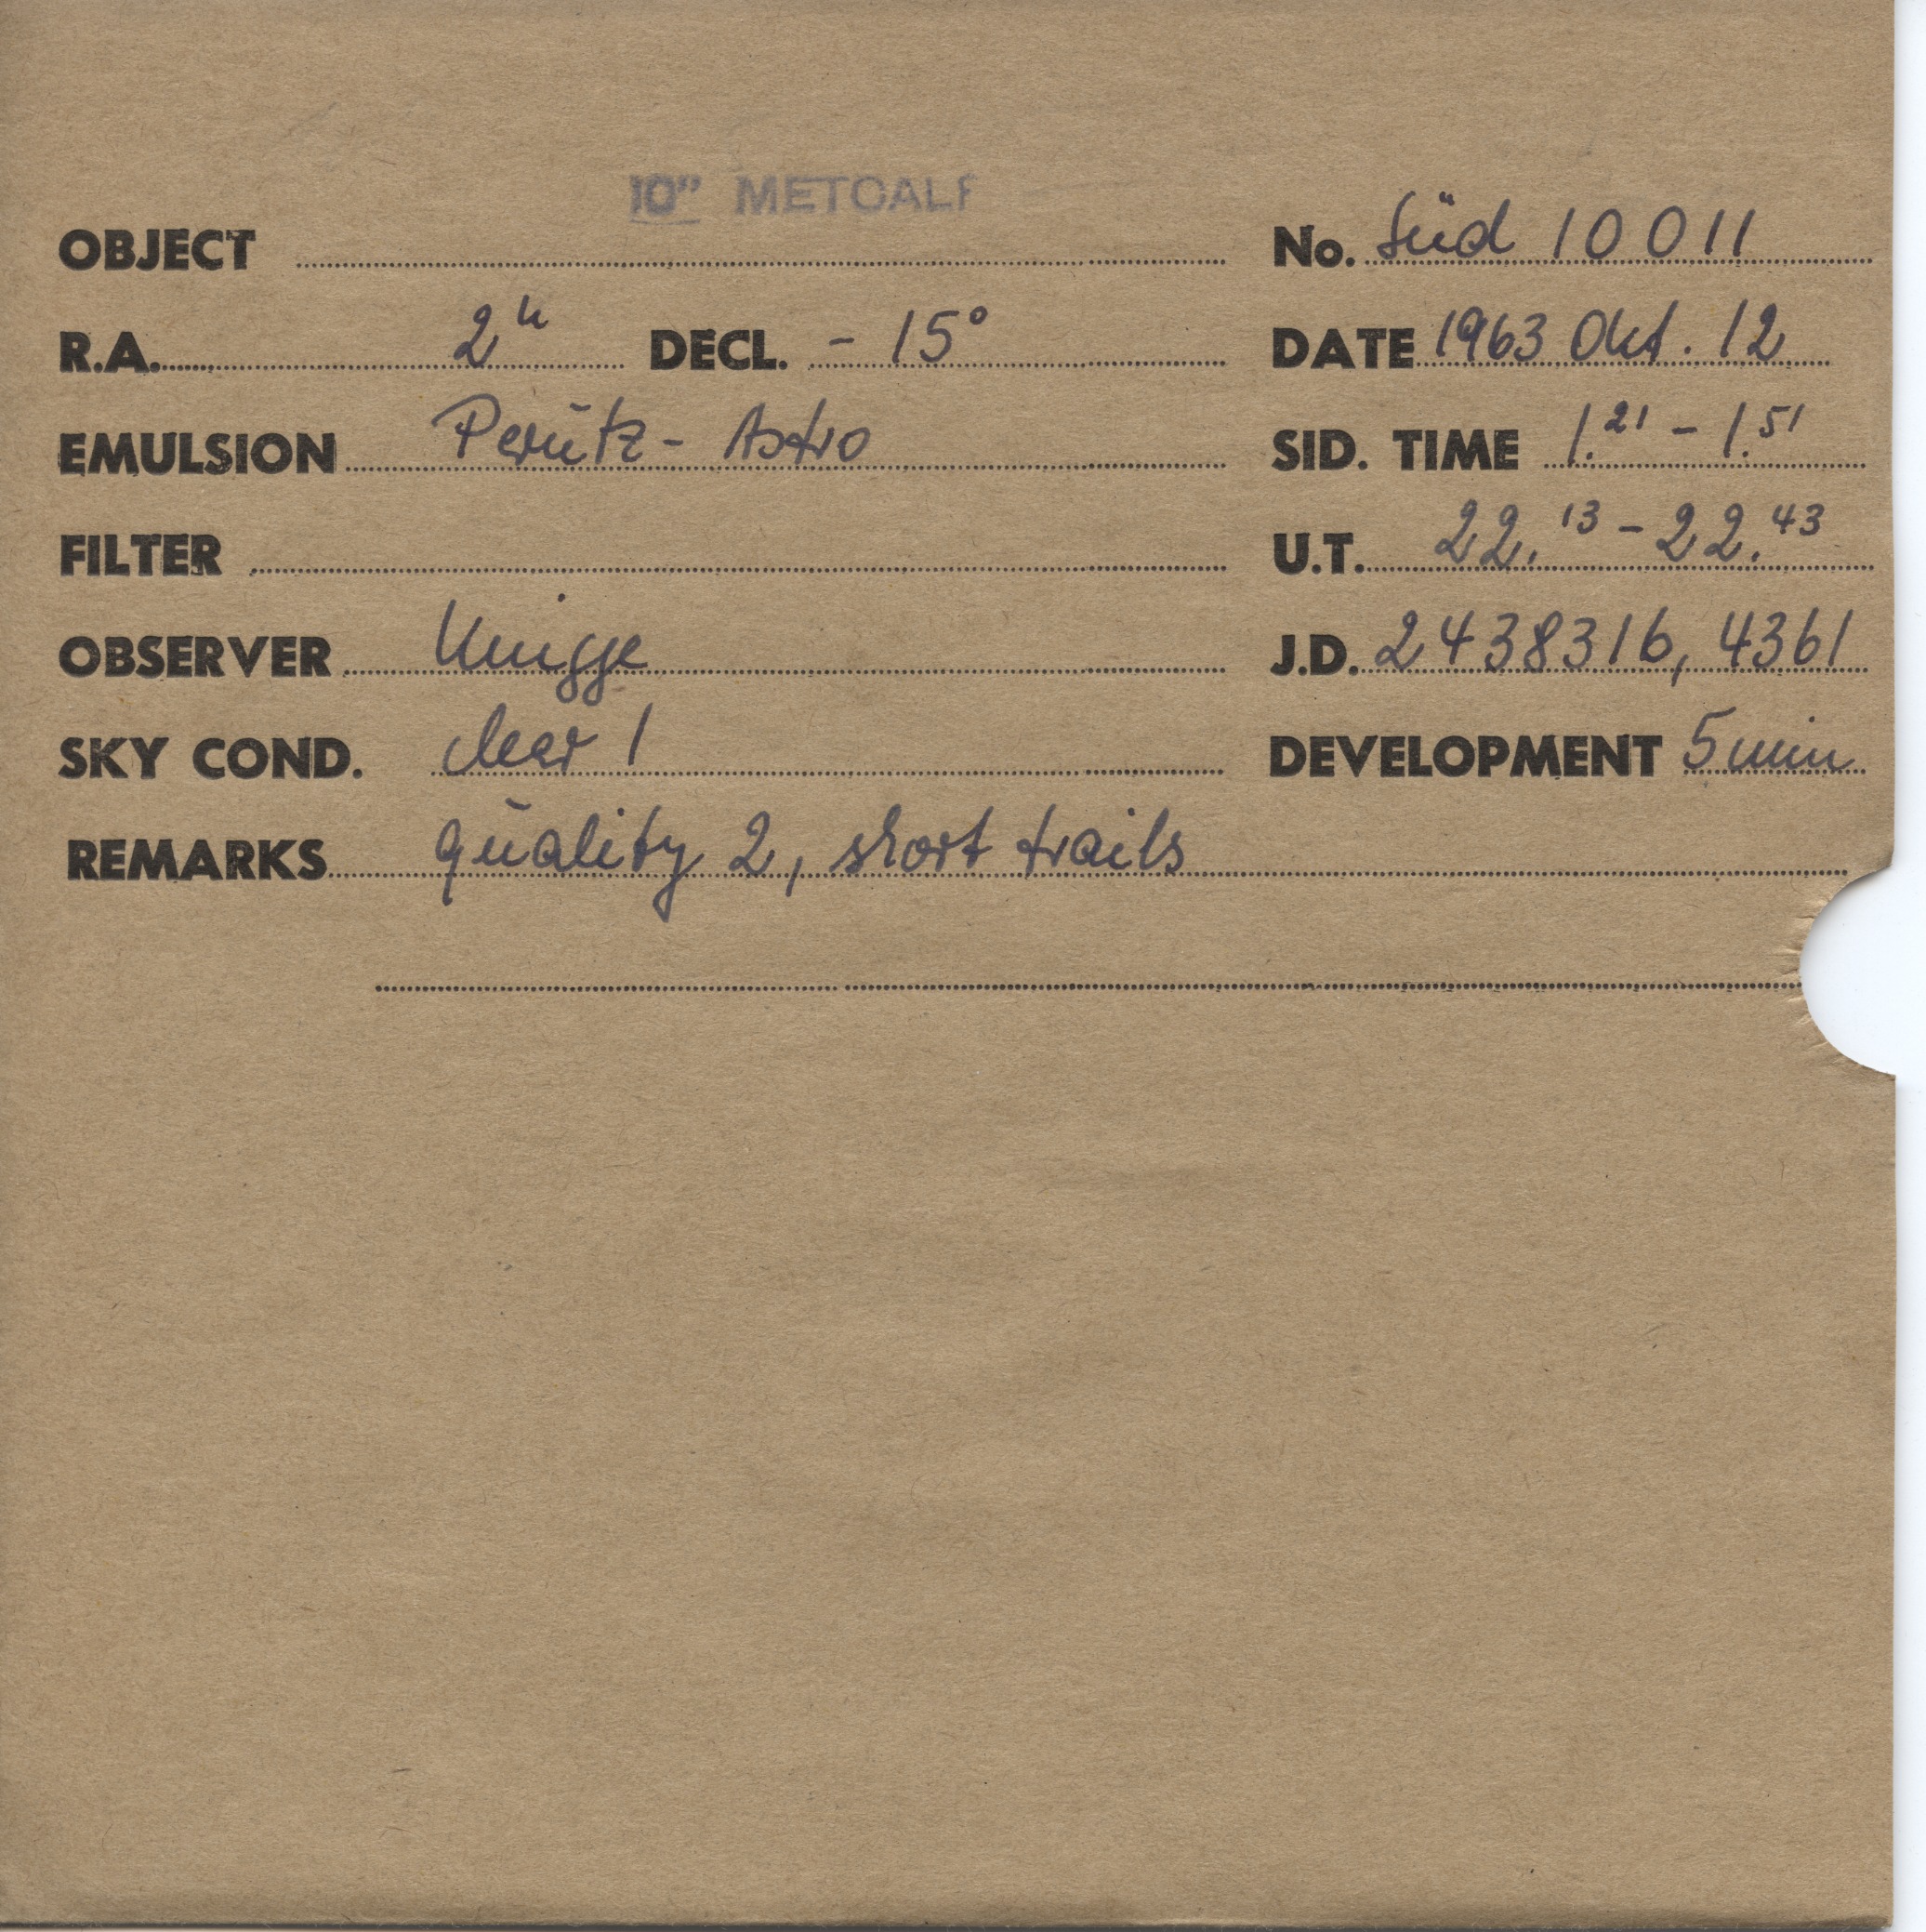 10" METCALF
OBJECT No. Süd 10011
R.A. 2h DECL. - 15° DATE 1963 Okt. 12
EMULSION Perutz - Astro SID. TIME 1.21 - 1.51
FILTER U.T. 22.13 - 22.43
OBSERVER Knigge J.D. 2438316,4361
SKY COND. clear 1 DEVELOPMENT 5 min
REMARKS quality 2, short trails